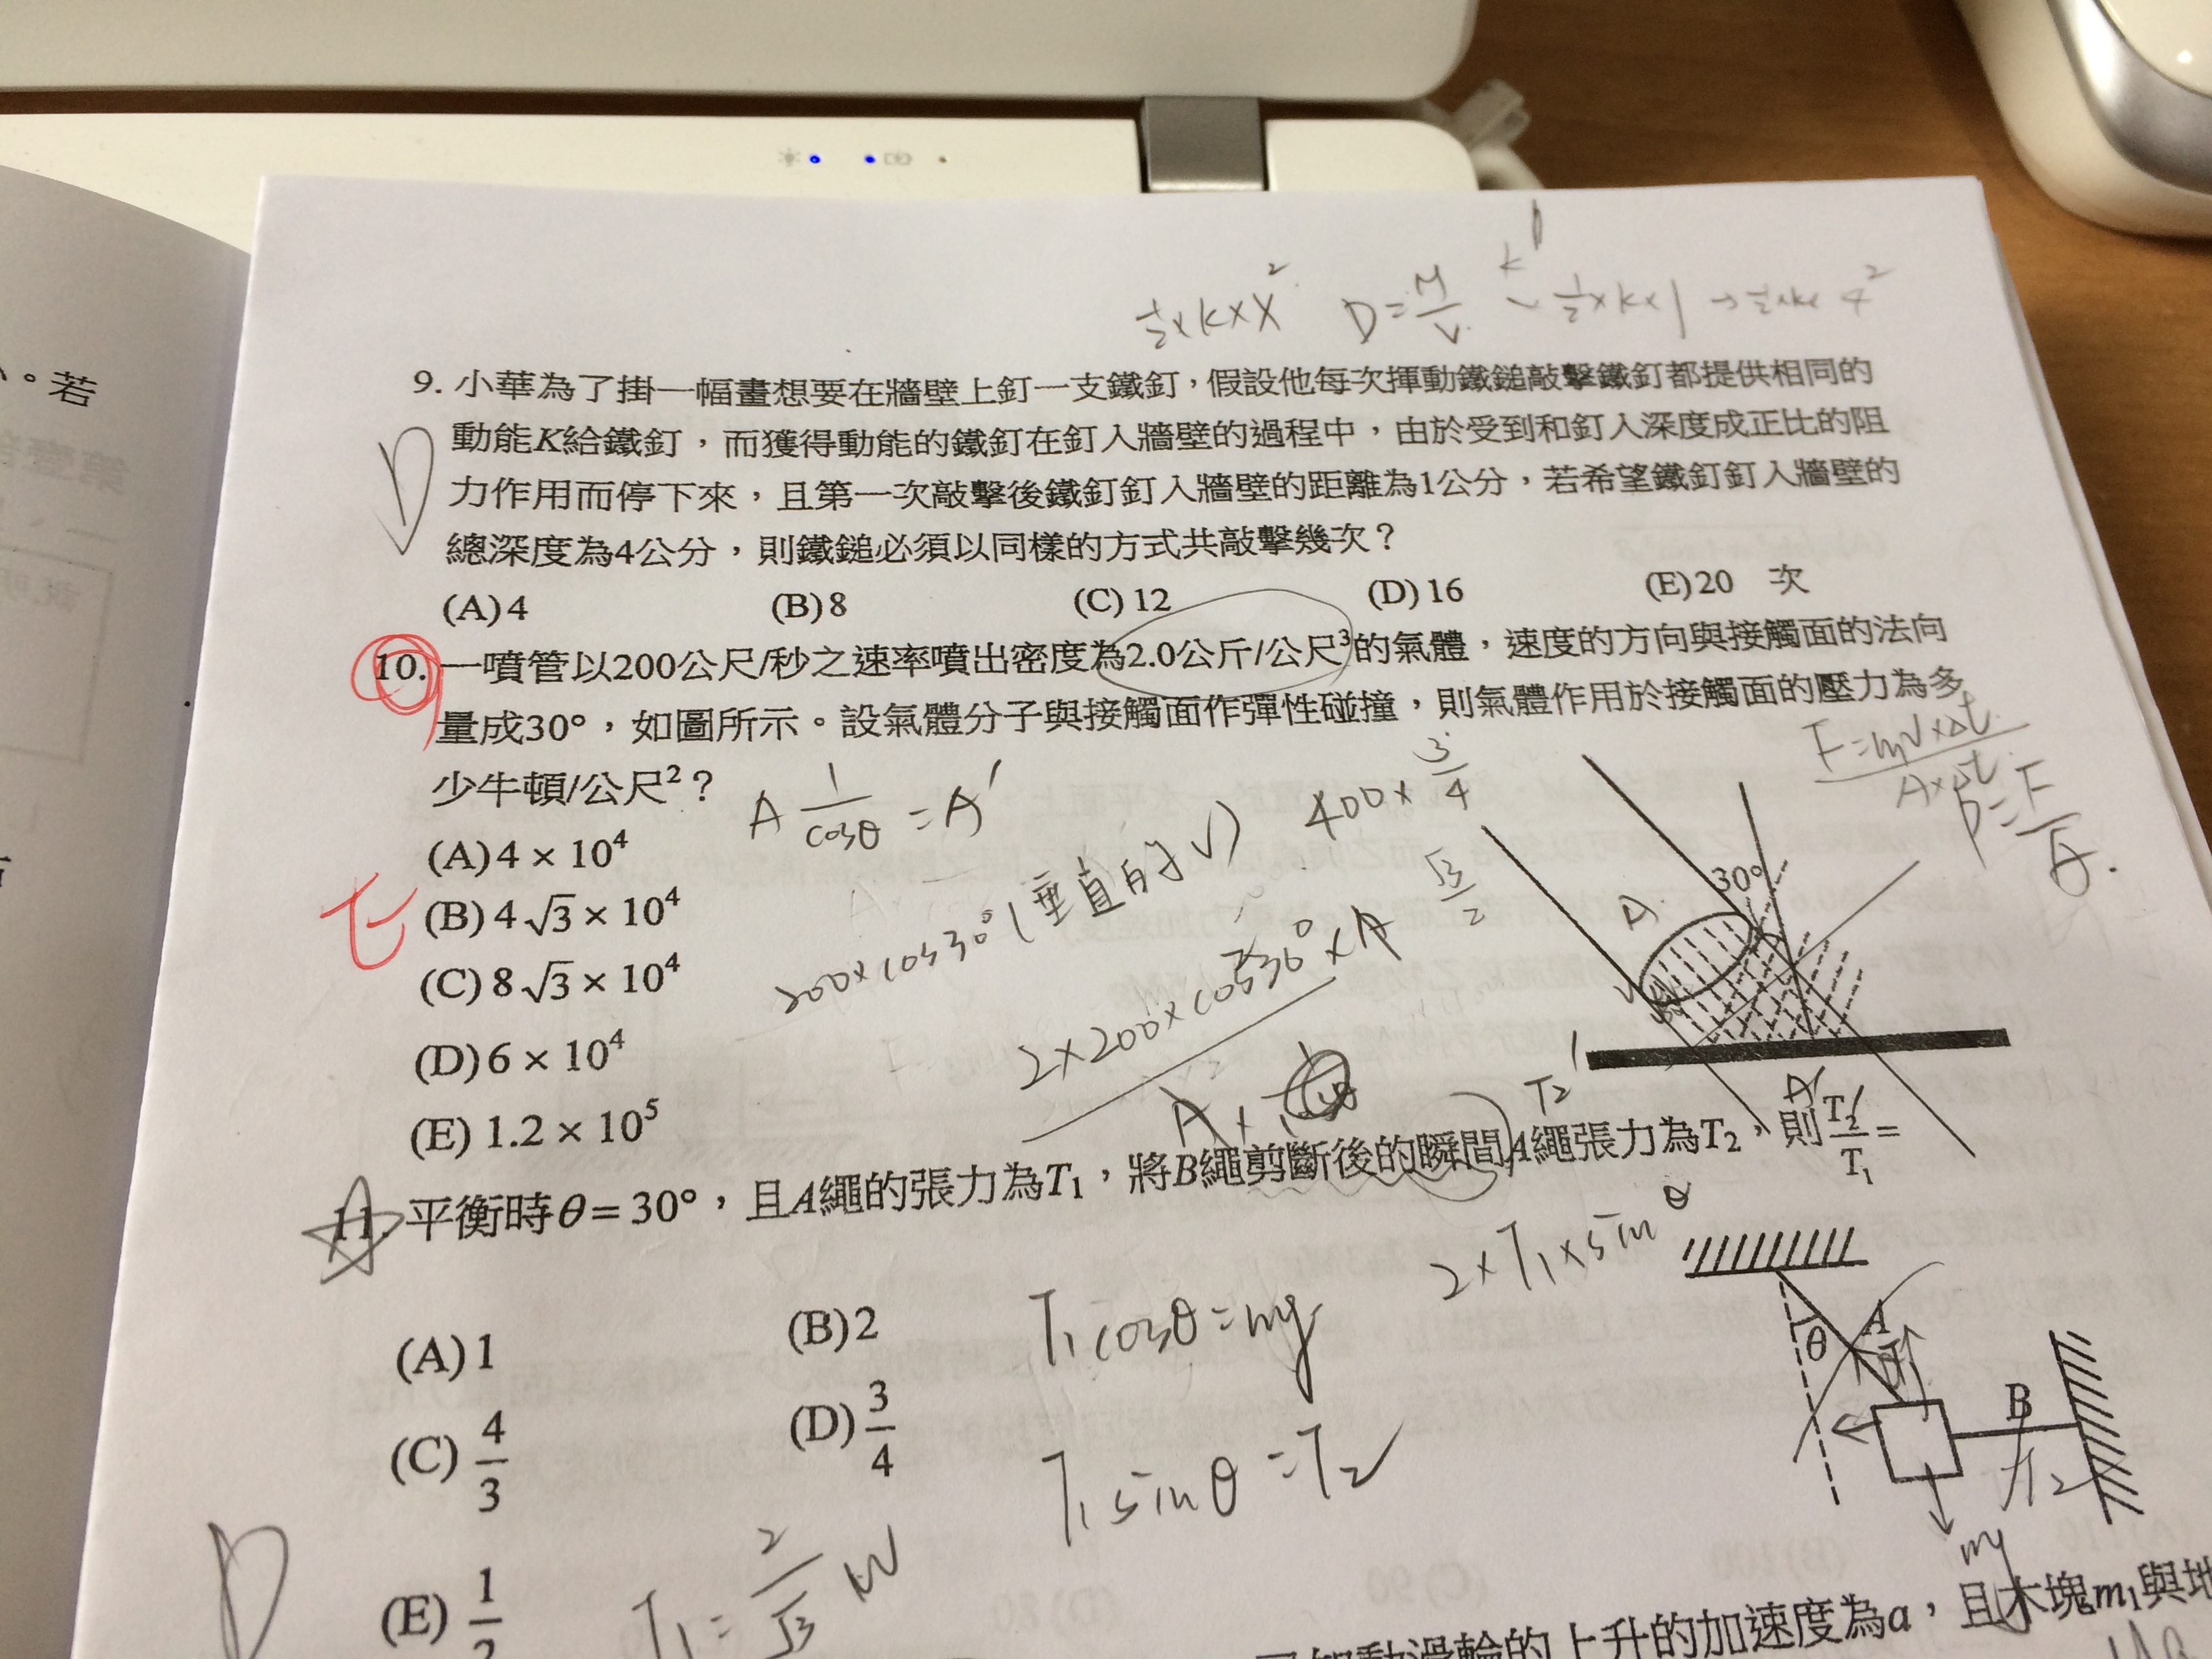 ½×k×X² D=M/V K ½×k×1 → ½×k× 4²
。若
9. 小華為了掛一幅畫想要在牆壁上釘一支鐵釘，假設他每次揮動鐵鎚敲擊鐵釘都提供相同的
動能K給鐵釘，而獲得動能的鐵釘在釘入牆壁的過程中，由於受到和釘入深度成正比的阻
力作用而停下來，且第一次敲擊後鐵釘釘入牆壁的距離為1公分，若希望鐵釘釘入牆壁的
總深度為4公分，則鐵鎚必須以同樣的方式共敲擊幾次？
D
(A)4 (B)8 (C)12 (D)16 (E)20 次
10. 一噴管以200公尺/秒之速率噴出密度為2.0公斤/公尺³的氣體，速度的方向與接觸面的法向
量成30°，如圖所示。設氣體分子與接觸面作彈性碰撞，則氣體作用於接觸面的壓力為多
少牛頓/公尺²？
A 1/cosθ = A′
400×3/4
F=mV×Δt / A×Δt
P=F/A
(A)4 × 10⁴
(B)4√3 × 10⁴
(C)8√3 × 10⁴
(D)6 × 10⁴
(E)1.2 × 10⁵
200×cos30°(垂直的V)
√3/2
2×200×cos30°×A
30°
A
A′
T₂′
11. 平衡時θ=30°，且A繩的張力為T₁，將B繩剪斷後的瞬間A繩張力為T₂，則T₂/T₁=
(A)1 (B)2
(C)4/3 (D)3/4
(E)1/2
T₁cosθ=mg
2×T₁×sinθ
T₁sinθ=T₂
T₁=2/√3 W
θ
A
B
T₂
mg
D
的上升的加速度為a，且木塊m₁與地